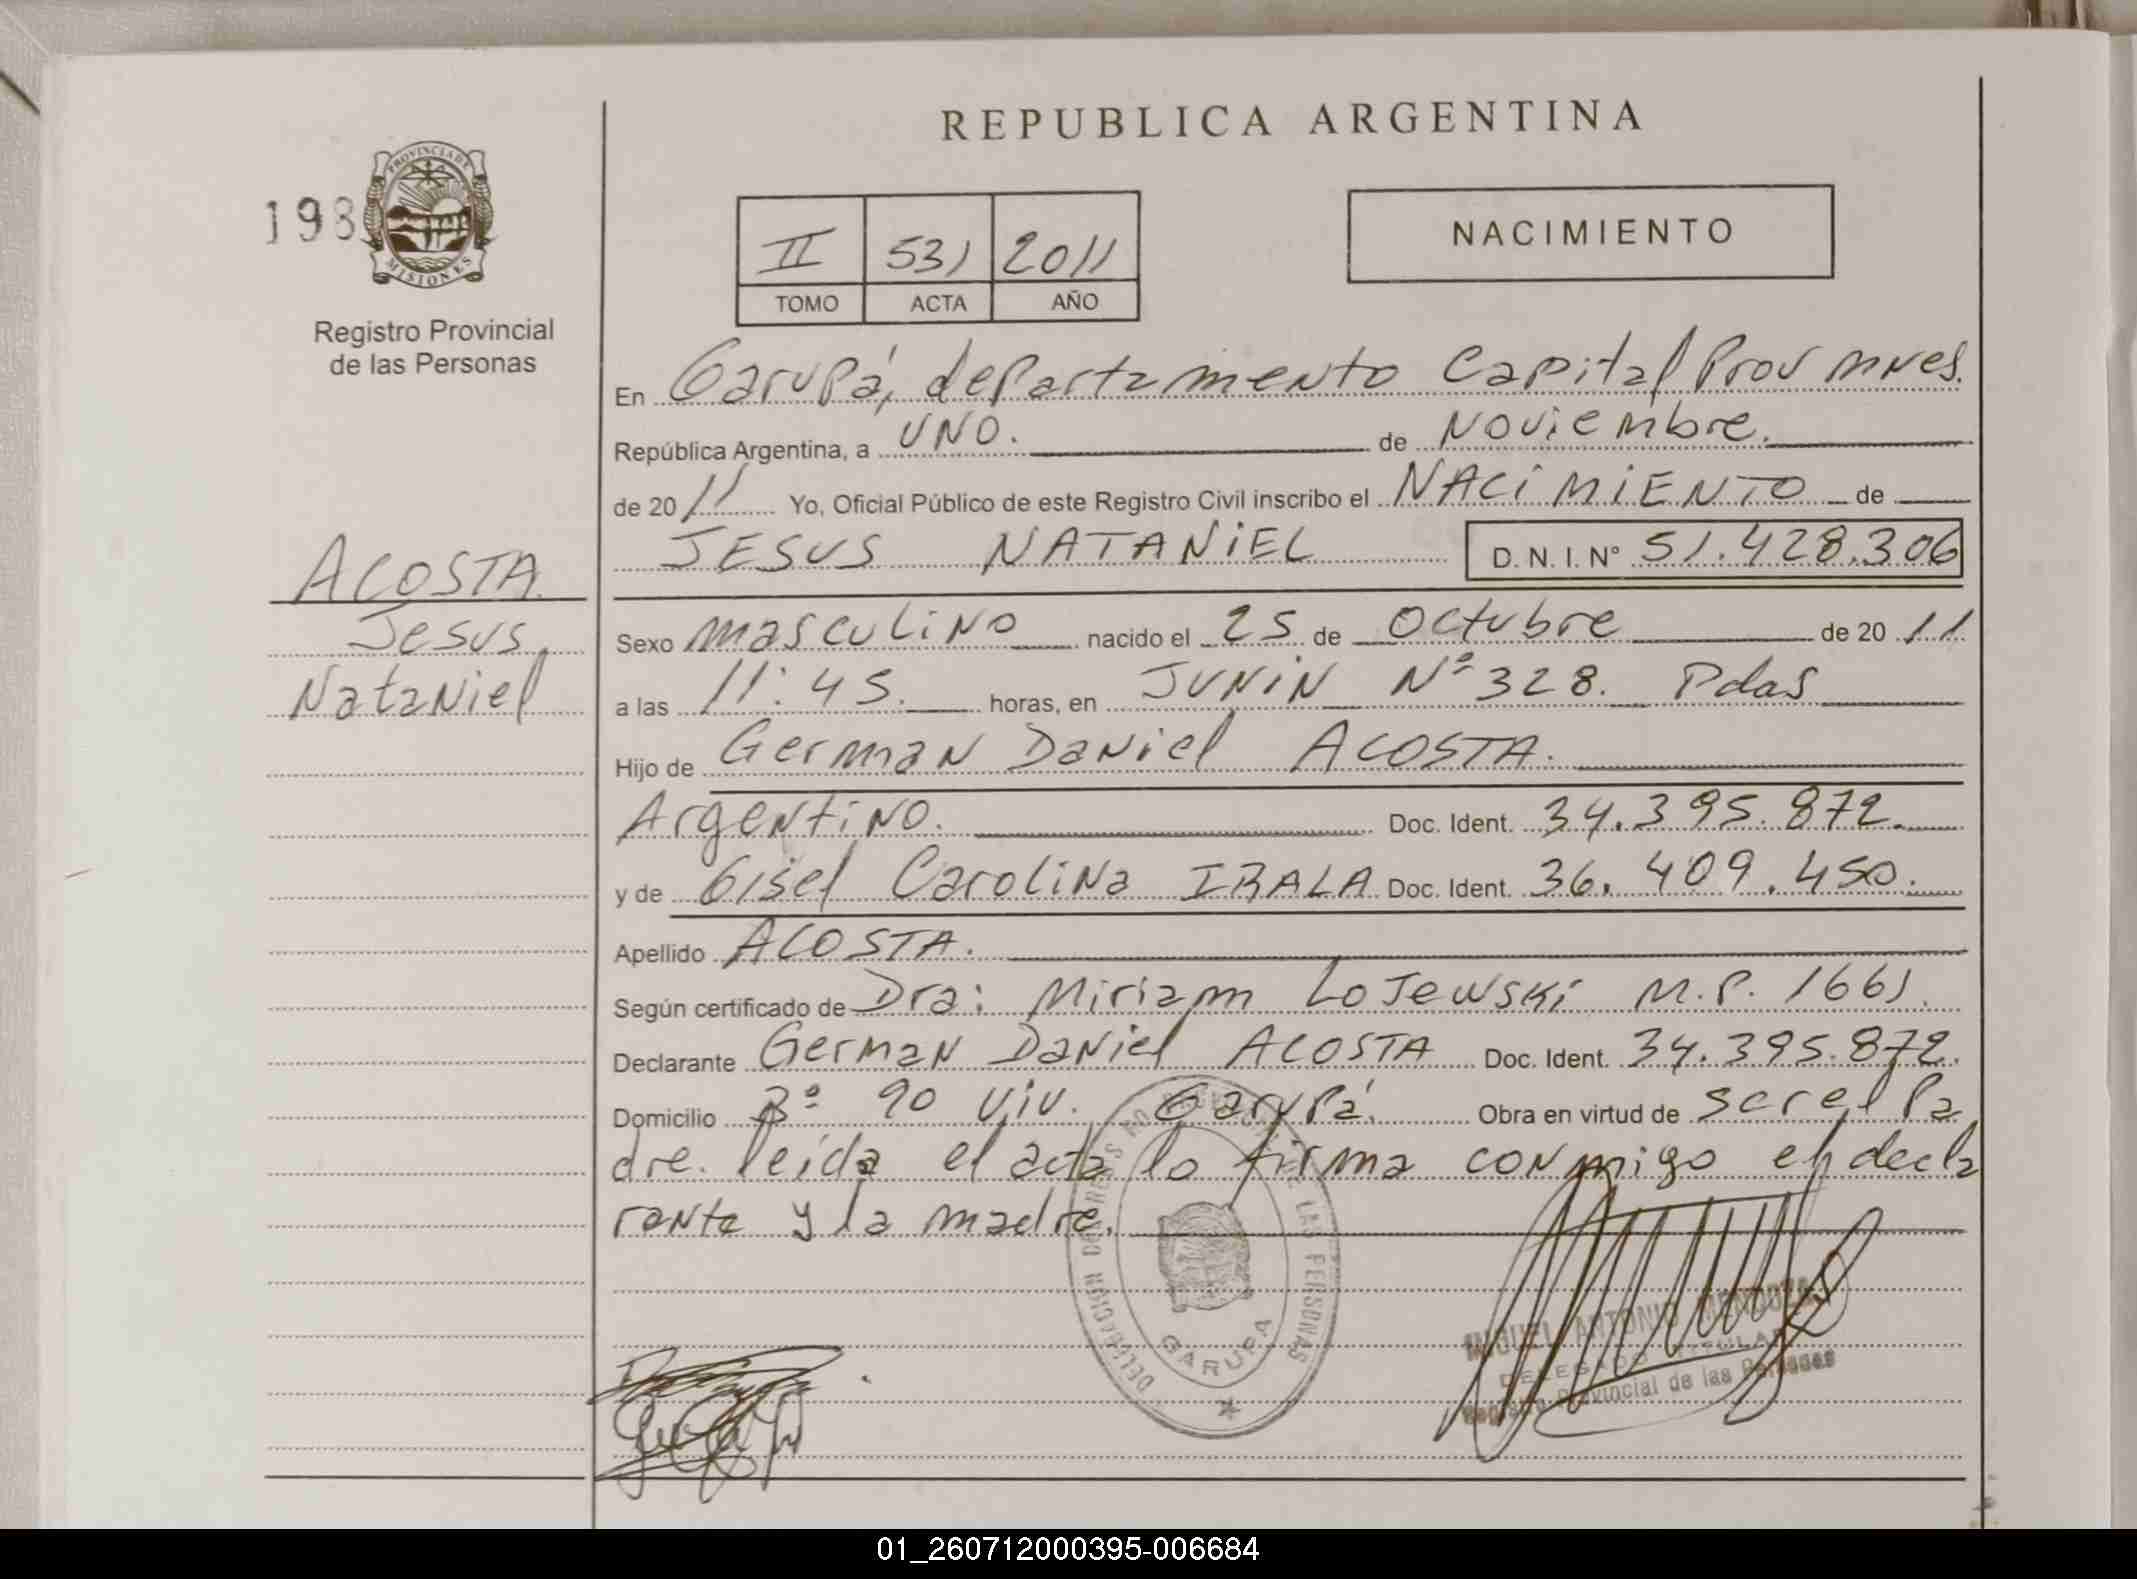 REPUBLICA ARGENTINA
198
PROVINCIA DE
MISIONES
Registro Provincial
de las Personas
II 531 2011
TOMO ACTA AÑO
NACIMIENTO
En Garupá, departamento Capital Prov Mnes.
República Argentina, a UNO. de Noviembre.
de 2011 Yo, Oficial Público de este Registro Civil inscribo el NACIMIENTO de
JESUS NATANIEL D. N. I. Nº 51.428.306
ACOSTA
Jesus
Nataniel
Sexo masculino nacido el 25 de Octubre de 2011
a las 11:45. horas, en JUNIN Nº 328. Pdas
Hijo de German Daniel ACOSTA.
Argentino. Doc. Ident. 34.395.872.
y de Gisel Carolina IRALA Doc. Ident. 36.409.450.
Apellido ACOSTA.
Según certificado de Dra: Miriam Lojewski M.P. 1661.
Declarante German Daniel ACOSTA Doc. Ident. 34.395.872.
Domicilio Bº 90 Viv. Garupá. Obra en virtud de ser el Pa
dre. leída el acta lo firma conmigo el decla
rante y la madre.
DELEGACION DE LAS PERSONAS
GARUPA
MIGUEL ANTONIO MENDOZA
DELEGADO TITULAR
Registro Provincial de las Personas
01_260712000395-006684